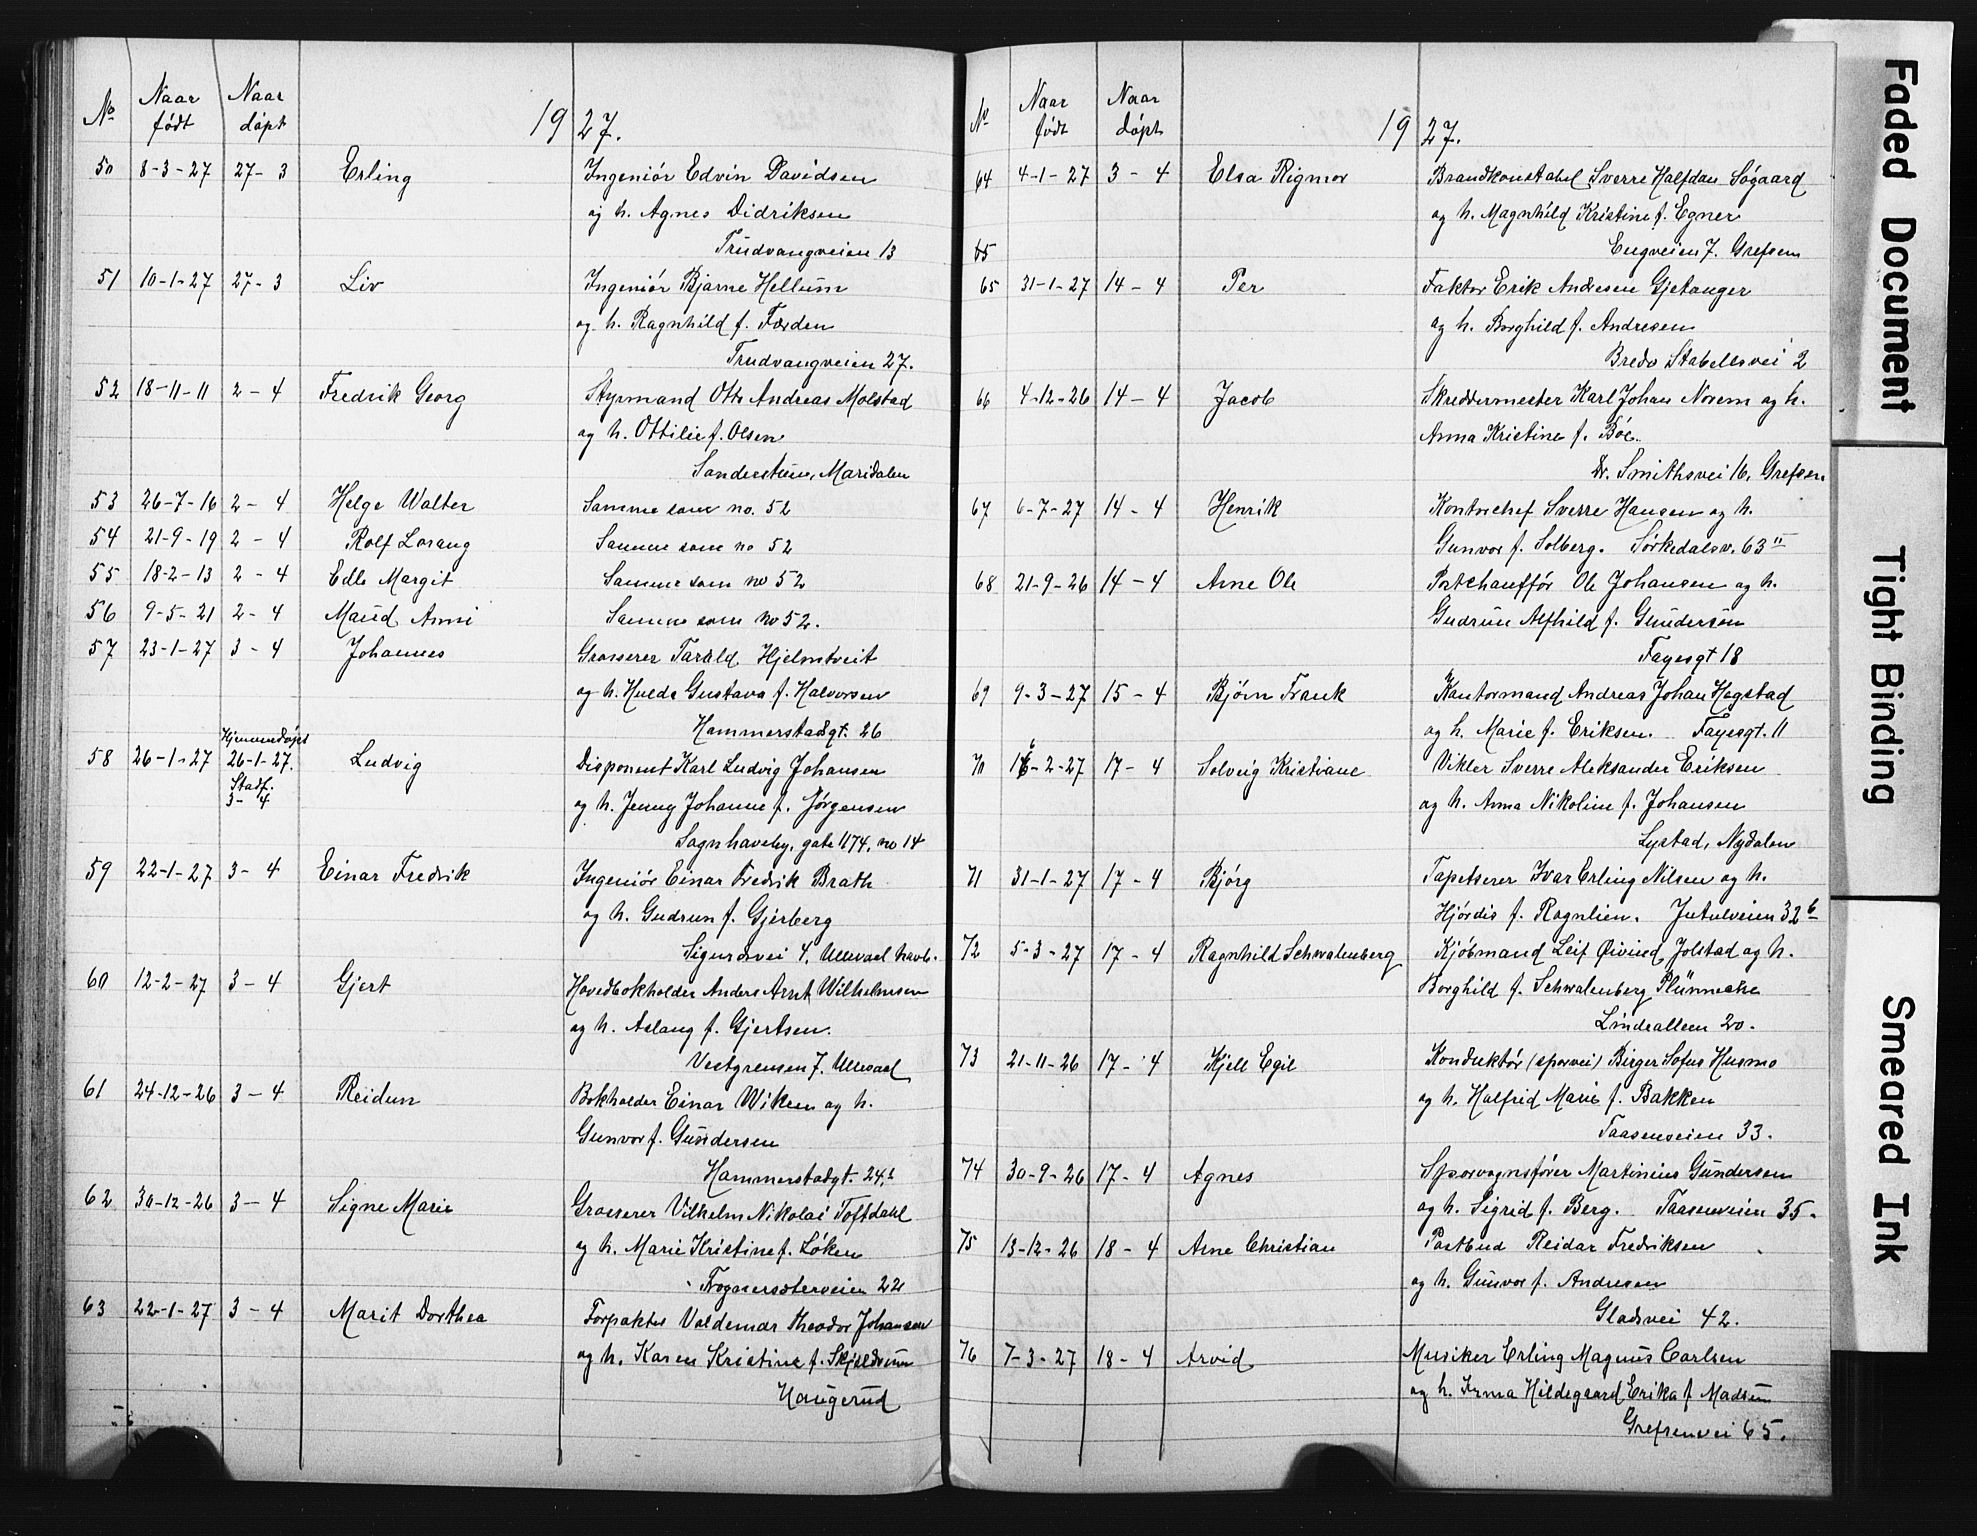 No Naar født Naar døpt 1927.
50 8-3-27 27-3 Erling Ingeniør Edvin Davidsen
og h. Agnes Didriksen
Trudvangveien 13
51 10-1-27 27-3 Liv Ingeniør Bjarne Hellum
og h. Ragnhild f. Færden
Trudvangveien 27.
52 18-11-11 2-4 Fredrik Georg Styrmand Otto Andreas Molstad
og h. Ottilie f. Olsen
Sanderstuen, Maridalen
53 26-7-16 2-4 Helge Walter Samme som no. 52
54 21-9-19 2-4 Rolf Lorang Samme som no 52
55 18-2-13 2-4 Edle Margit Samme som no 52
56 9-5-21 2-4 Maud Anni Samme som no 52.
57 23-1-27 3-4 Johannes Grosserer Tarald Hjelmtveit
og h. Hulda Gustava f. Halvorsen
Hammerstadgt. 26
Hjemmedøpt
58 26-1-27 26-1-27. Ludvig Disponent Karl Ludvig Johansen
Stadf.
3-4 og h. Jenny Johanne f. Jørgensen
Sognhaveby, gate 1174, no 14
59 22-1-27 3-4 Einar Fredrik Ingeniør Einar Fredrik Brath
og h. Gudrun f. Gjerberg
Sigurdsvei 4, Ullevaal haveb.
60 12-2-27 3-4 Gjert Hovedbokholder Anders Arnt Wilhelmsen
og h. Aslaug f. Gjertsen.
Vestgrensen 7. Ullevaal
61 24-12-26 3-4 Reidun Bokholder Einar Wiken og h.
Gunvor f. Gundersen
Hammerstadgt. 24b
62 30-12-26 3-4 Signe Marie Grosserer Vilhelm Nikolai Toftdahl
og h. Marie Kristine f. Løken
Frognersæterveien 22
63 22-1-27 3-4 Marit Dorthea Forpakter Valdemar Theodor Johansen
og h. Karen Kristine f. Skjeldrum
Haugerud
No Naar født Naar døpt 1927.
64 4-1-27 3-4 Elsa Rigmor Brandkonstabel Sverre Halfdan Søgaard
og h. Magnhild Kristine f. Egner
65 Engveien 7. Grefsen
65 31-1-27 14-4 Per Faktor Erik Andresen Gjetanger
og h. Borghild f. Andresen
Bredo Stabellsvei 2
66 4-12-26 14-4 Jacob Skreddermester Karl Johan Norem og h.
Anna Kristine f. Bøe.
Dr. Smithsvei 16, Grefsen
67 6-7-27 14-4 Henrik Kontorchef Sverre Hansen og h.
Gunvor f. Solberg. Sørkedalsv. 63 II
68 21-9-26 14-4 Arne Ole Postchauffør Ole Johansen og h.
Gudrun Alfhild f. Gunderson
Fayesgt 18
69 9-3-27 15-4 Bjørn Frank Kantormand Andreas Johan Hogstad
og h. Marie f. Eriksen. Fayesgt. 11
70 16-2-27 17-4 Solveig Kristiane Vikler Sverre Aleksander Eriksen
og h. Anna Nikoline f. Johansen
Lystad, Nydalen
71 31-1-27 17-4 Bjørg Tapetserer Ivar Erling Nilsen og h.
Hjørdis f. Rognlien. Jutulveien 32b
72 5-3-27 17-4 Ragnhild Schwalenberg Kjøbmand Leif Øivind Jolstad og h.
Borghild f. Schwalenberg Plünnecke
Lindealleen 20.
73 21-11-26 17-4 Kjell Egil Konduktør (sporvei) Birger Sofus Husmo
og h. Halfrid Marie f. Bakken
Taasenveien 33.
74 30-9-26 17-4 Agnes Sporvognsfører Martinius Gundersen
og h. Sigrid f. Berg. Taasenveien 35.
75 13-12-26 18-4 Arne Christian Postbud Reidar Fredriksen
og h. Gunvor f. Andresen
Gladsvei 42.
76 7-3-27 18-4 Arvid Musiker Erling Magnus Carlsen
og h. Irma Hildegaard Erika f. Madsen
Grefsenvei 65.
Faded Document
Tight Binding
Smeared Ink